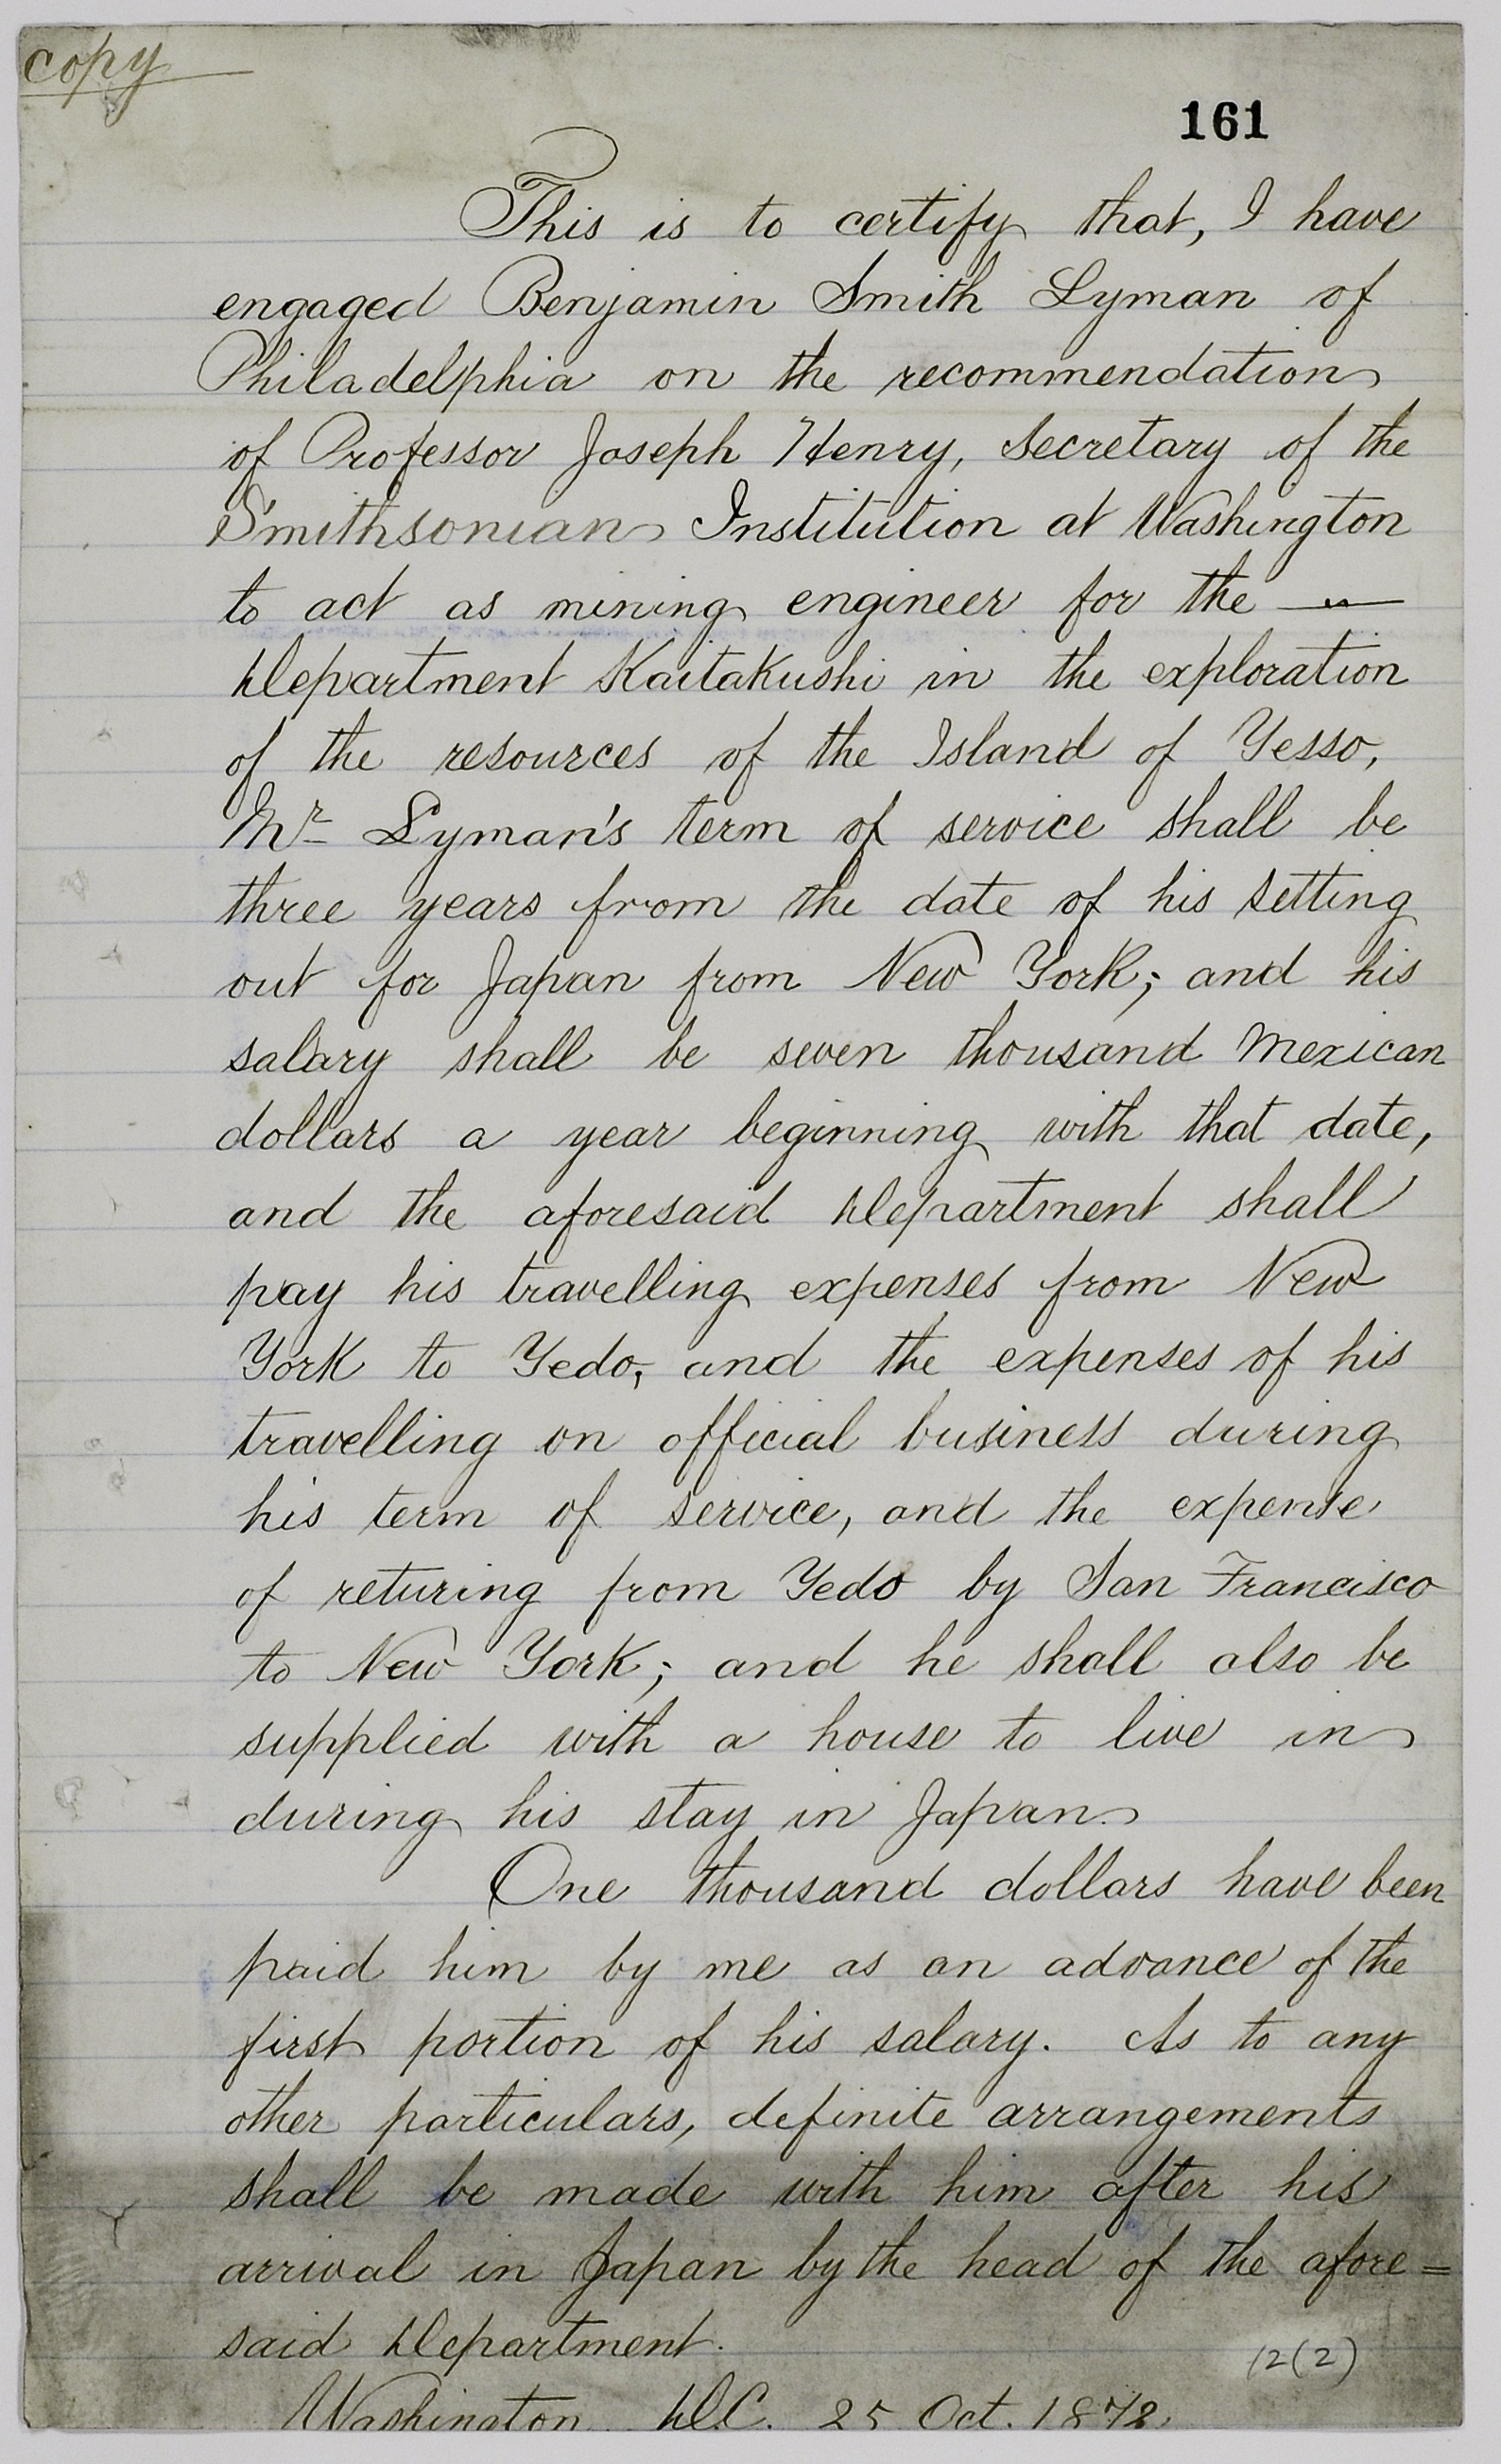 copy
161
This is to certify that, I have
engaged Benjamin Smith Lyman of
Philadelphia on the recommendation
of Professor Joseph Henry, Secretary of the
Smithsonian Institution at Washington
to act as mining engineer for the —
Department Kaitakushi in the exploration
of the resources of the Island of Yesso,
Mr Lyman's term of service shall be
three years from the date of his setting
out for Japan from New York; and his
salary shall be seven thousand Mexican
dollars a year beginning with that date,
and the aforesaid Department shall
pay his travelling expenses from New
York to Yedo, and the expenses of his
travelling on official business during
his term of service, and the expense
of returing from Yedo by San Francisco
to New York; and he shall also be
supplied with a house to live in
during his stay in Japan.
One thousand dollars have been
paid him by me as an advance of the
first portion of his salary. As to any
other particulars, definite arrangements
shall be made with him after his
arrival in Japan by the head of the afore=
said Department.
12(2)
Washington D.C. 25 Oct. 1872